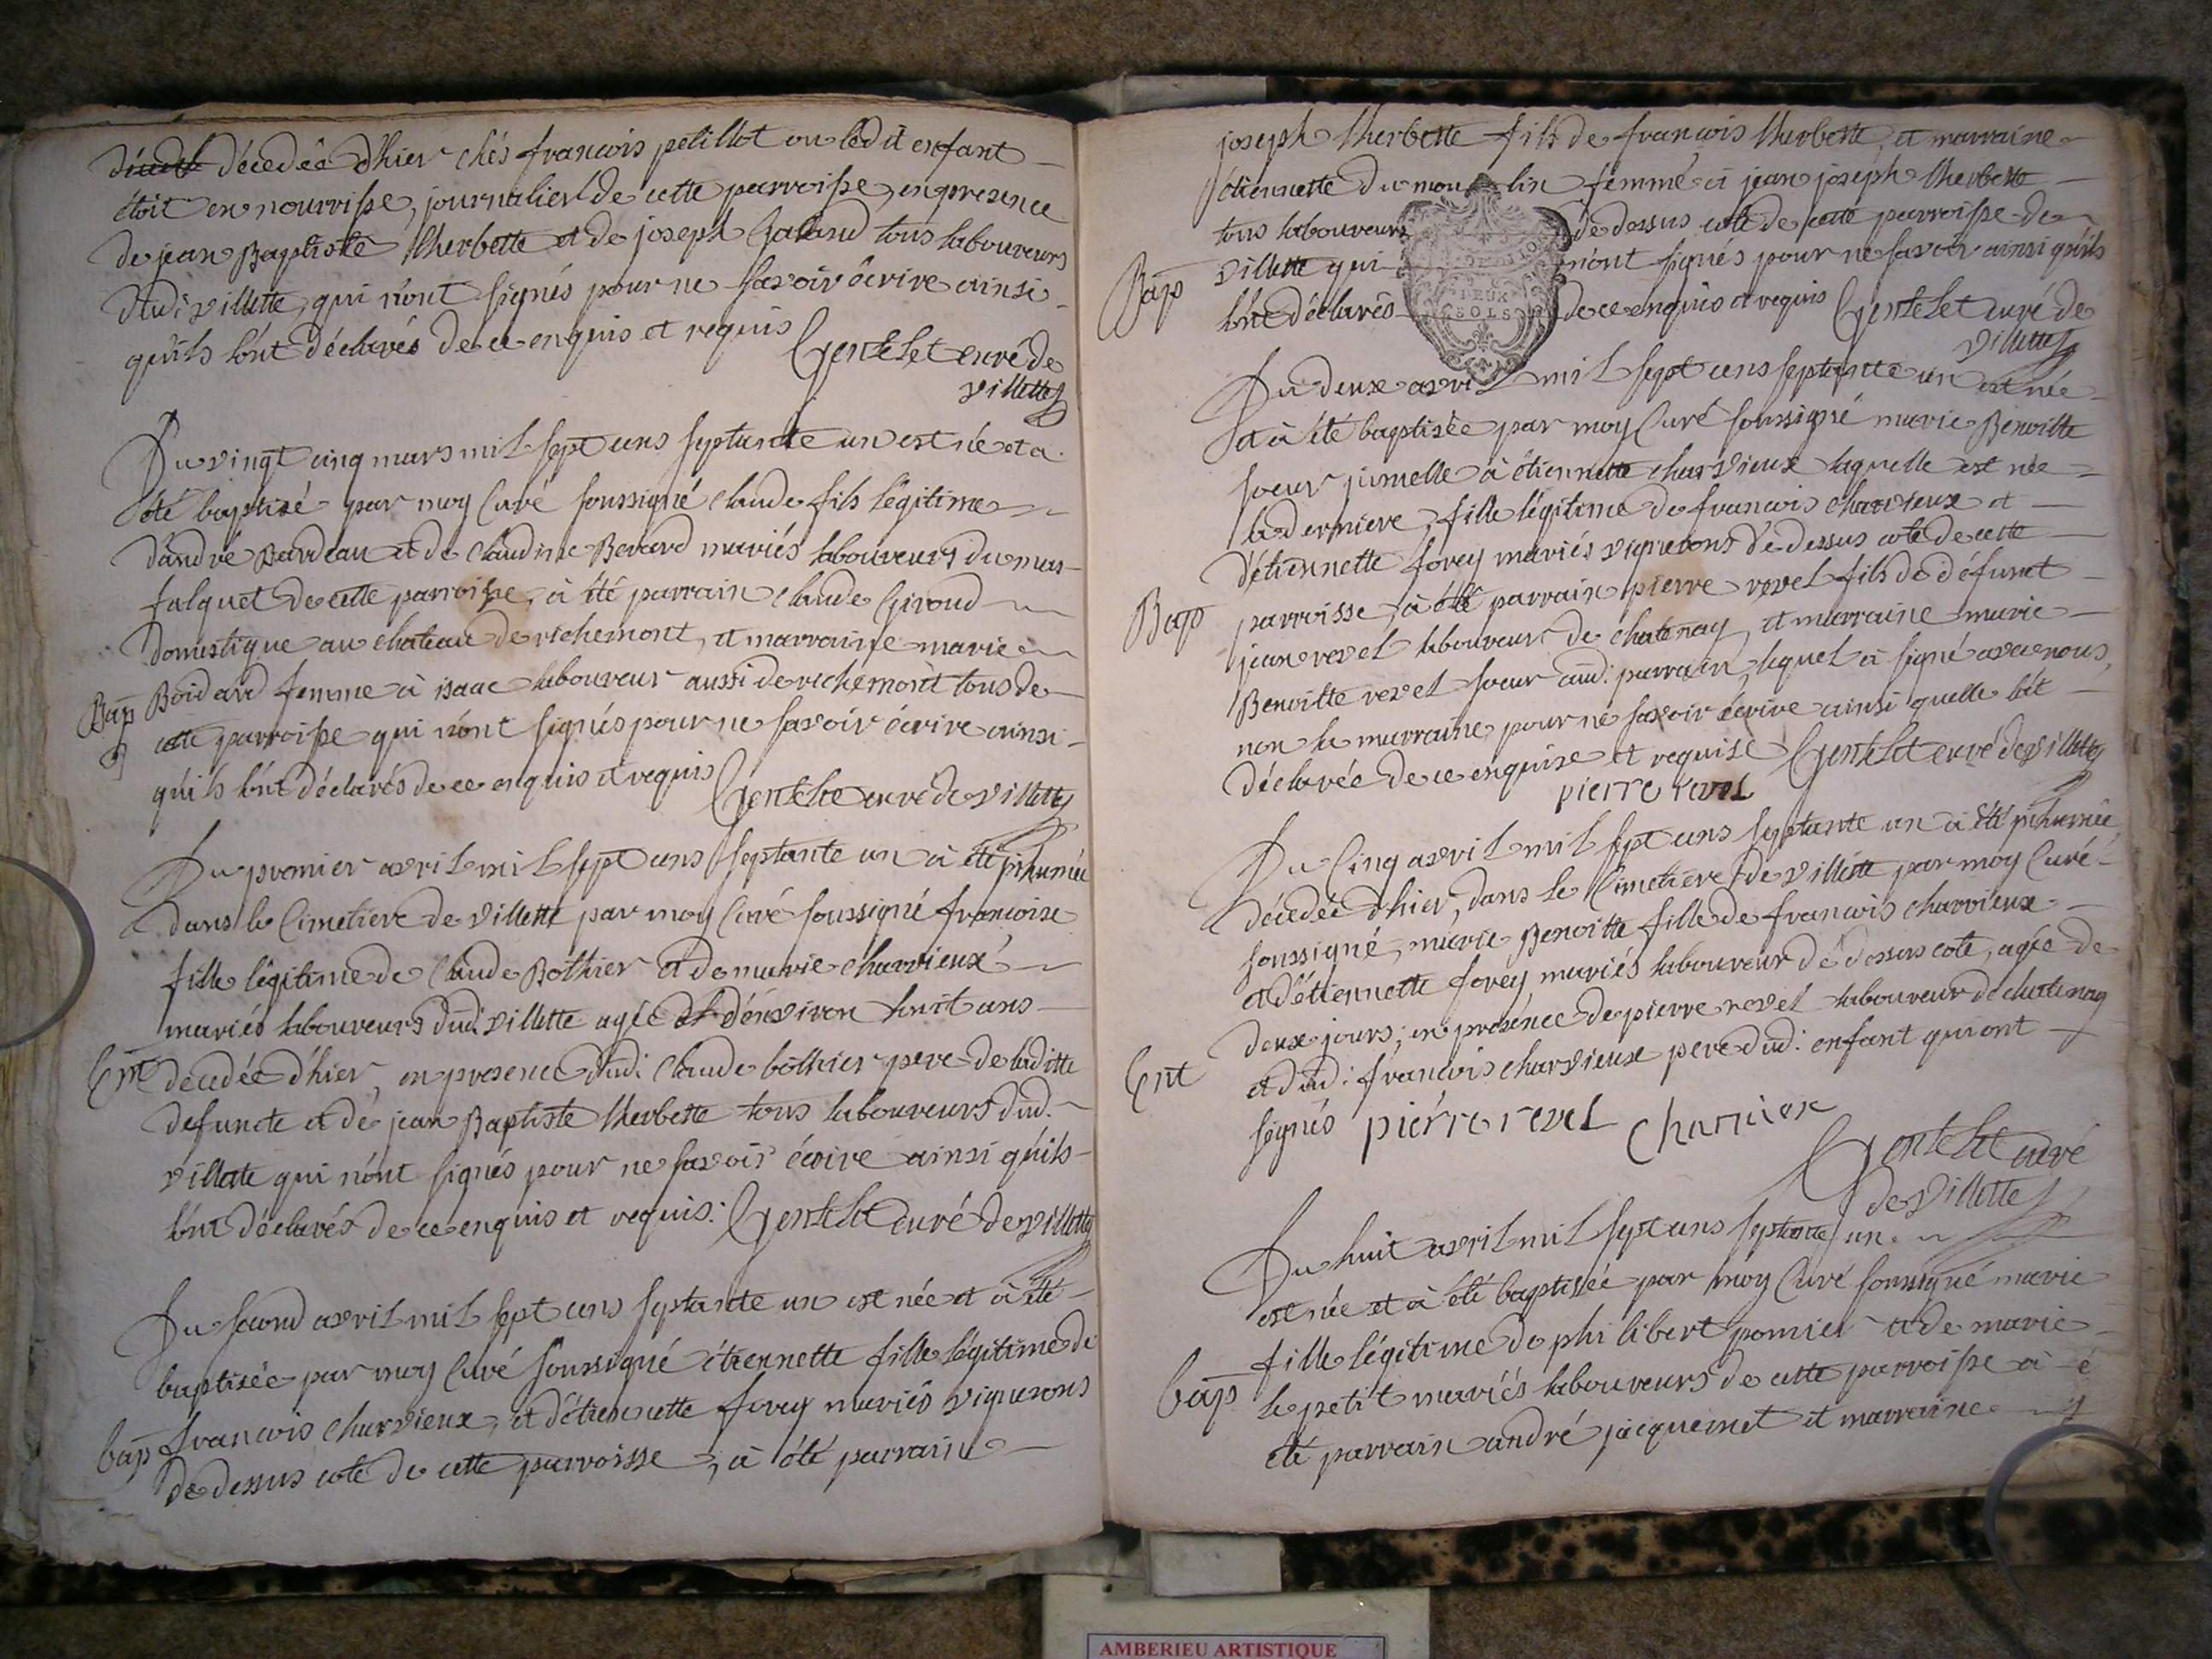 décedée d'hier chés françois petillot ou ledit enfant
étoit en nourrisse, journalier de cette parroisse, en presence
de jean Baptiste therbette et de joseph Galand tous laboureurs
dudi villette, qui n'ont signés pour ne savoir écrire ainsi
qu'ils l'ont déclarés de ce enquis et requis Gentelet curé de
villette
Du vingt cinq mars mil sept cens septante un est né et a
été baptisé par moy Curé soussigné claude fils légitime
d'andré Bardeau et de claudine Berard mariés laboureurs du mas
falquet de cette parroisse, à été parrain claude Giroud
domestique au chateau de richemont, et marraine marie
Bap Boidard femme à isaac laboureur aussi de richemont tous de
cette parroisse qui n'ont signés pour ne savoir écrire ainsi
qu'ils l'ont déclarés de ce enquis et requis Gentelet curé de villette
Du premier avril mil sept cens septante un à été inhumée
dans le Cimetiere de villette par moy Curé soussigné françoise
fille légitime de claude Bothier et de marie charvieux
mariés laboureurs dud. villette agée d'énviron huit ans
Ent décedée d'hier, en presence dud. claude bothier pere de laditte
defuncte et de jean Baptiste therbette tous laboureurs dud.
villette qui n'ont signés pour ne savoir écrire ainsi qu'ils
l'ont déclarés de ce enquis et requis. Gentelet curé de villette
Du second avril mil sept cens septante un est née et à été
baptisée par moy Curé soussigné étiennette fille légitime de
bap françois charvieux, et d'étiennette forey mariés vignerons
de dessus cote de cette parroisse, à été parrain
joseph therbette fils de françois therbette, et marraine
étiennette du moulin femme à jean joseph therbette
tous laboureurs de dessus cote de cette parroisse de
Bap villette qui n'ont signés pour ne savoir ainsi qu'ils
DEUX
SOLS
l'ont déclarés de ce enquis et requis Gentelet curé de
villette
Du deux avril mil sept cens septante un est née
et à été baptisée par moy Curé soussigné marie Benoitte
soeur jumelle à étiennette charvieux laquelle est née
la derniere, fille légitime de françois charvieux et
d'étiennette forey mariés vignerons de dessus cote de cette
Bap parroisse, à été parrain pierre revel fils de défunct
jean revel laboureur de chatenay, et marraine marie
Benoitte revel soeur aud. parrain, lequel à signé avec nous,
non la marraine pour ne savoir écrire ainsi quelle l'at
déclarée de ce enquise et requise Gentelet curé de villette
pierre revel
Du Cinq avril mil sept cens septante un à été inhumée
décedée d'hier, dans le Cimetiere de villette par moy Curé
soussigné, marie Benoitte fille de françois charvieux
et d'étiennette forey mariés laboureur de dessus cote, agée de
deux jours, en présence de pierre revel laboureur de chatenay
Ent et dud. françois charvieux pere dud. enfant qui ont
signés pierre revel Charvieux
Gentelet curé
de villette
Du huit avril mil sept cens septante un
est née et à été baptisée par moy Curé soussigné marie
fille légitime de philibert pomier et de marie
bap le petit mariés laboureurs de cette parroisse à
été parrain andré jacquemet et marraine
AMBERIEU ARTISTIQUE